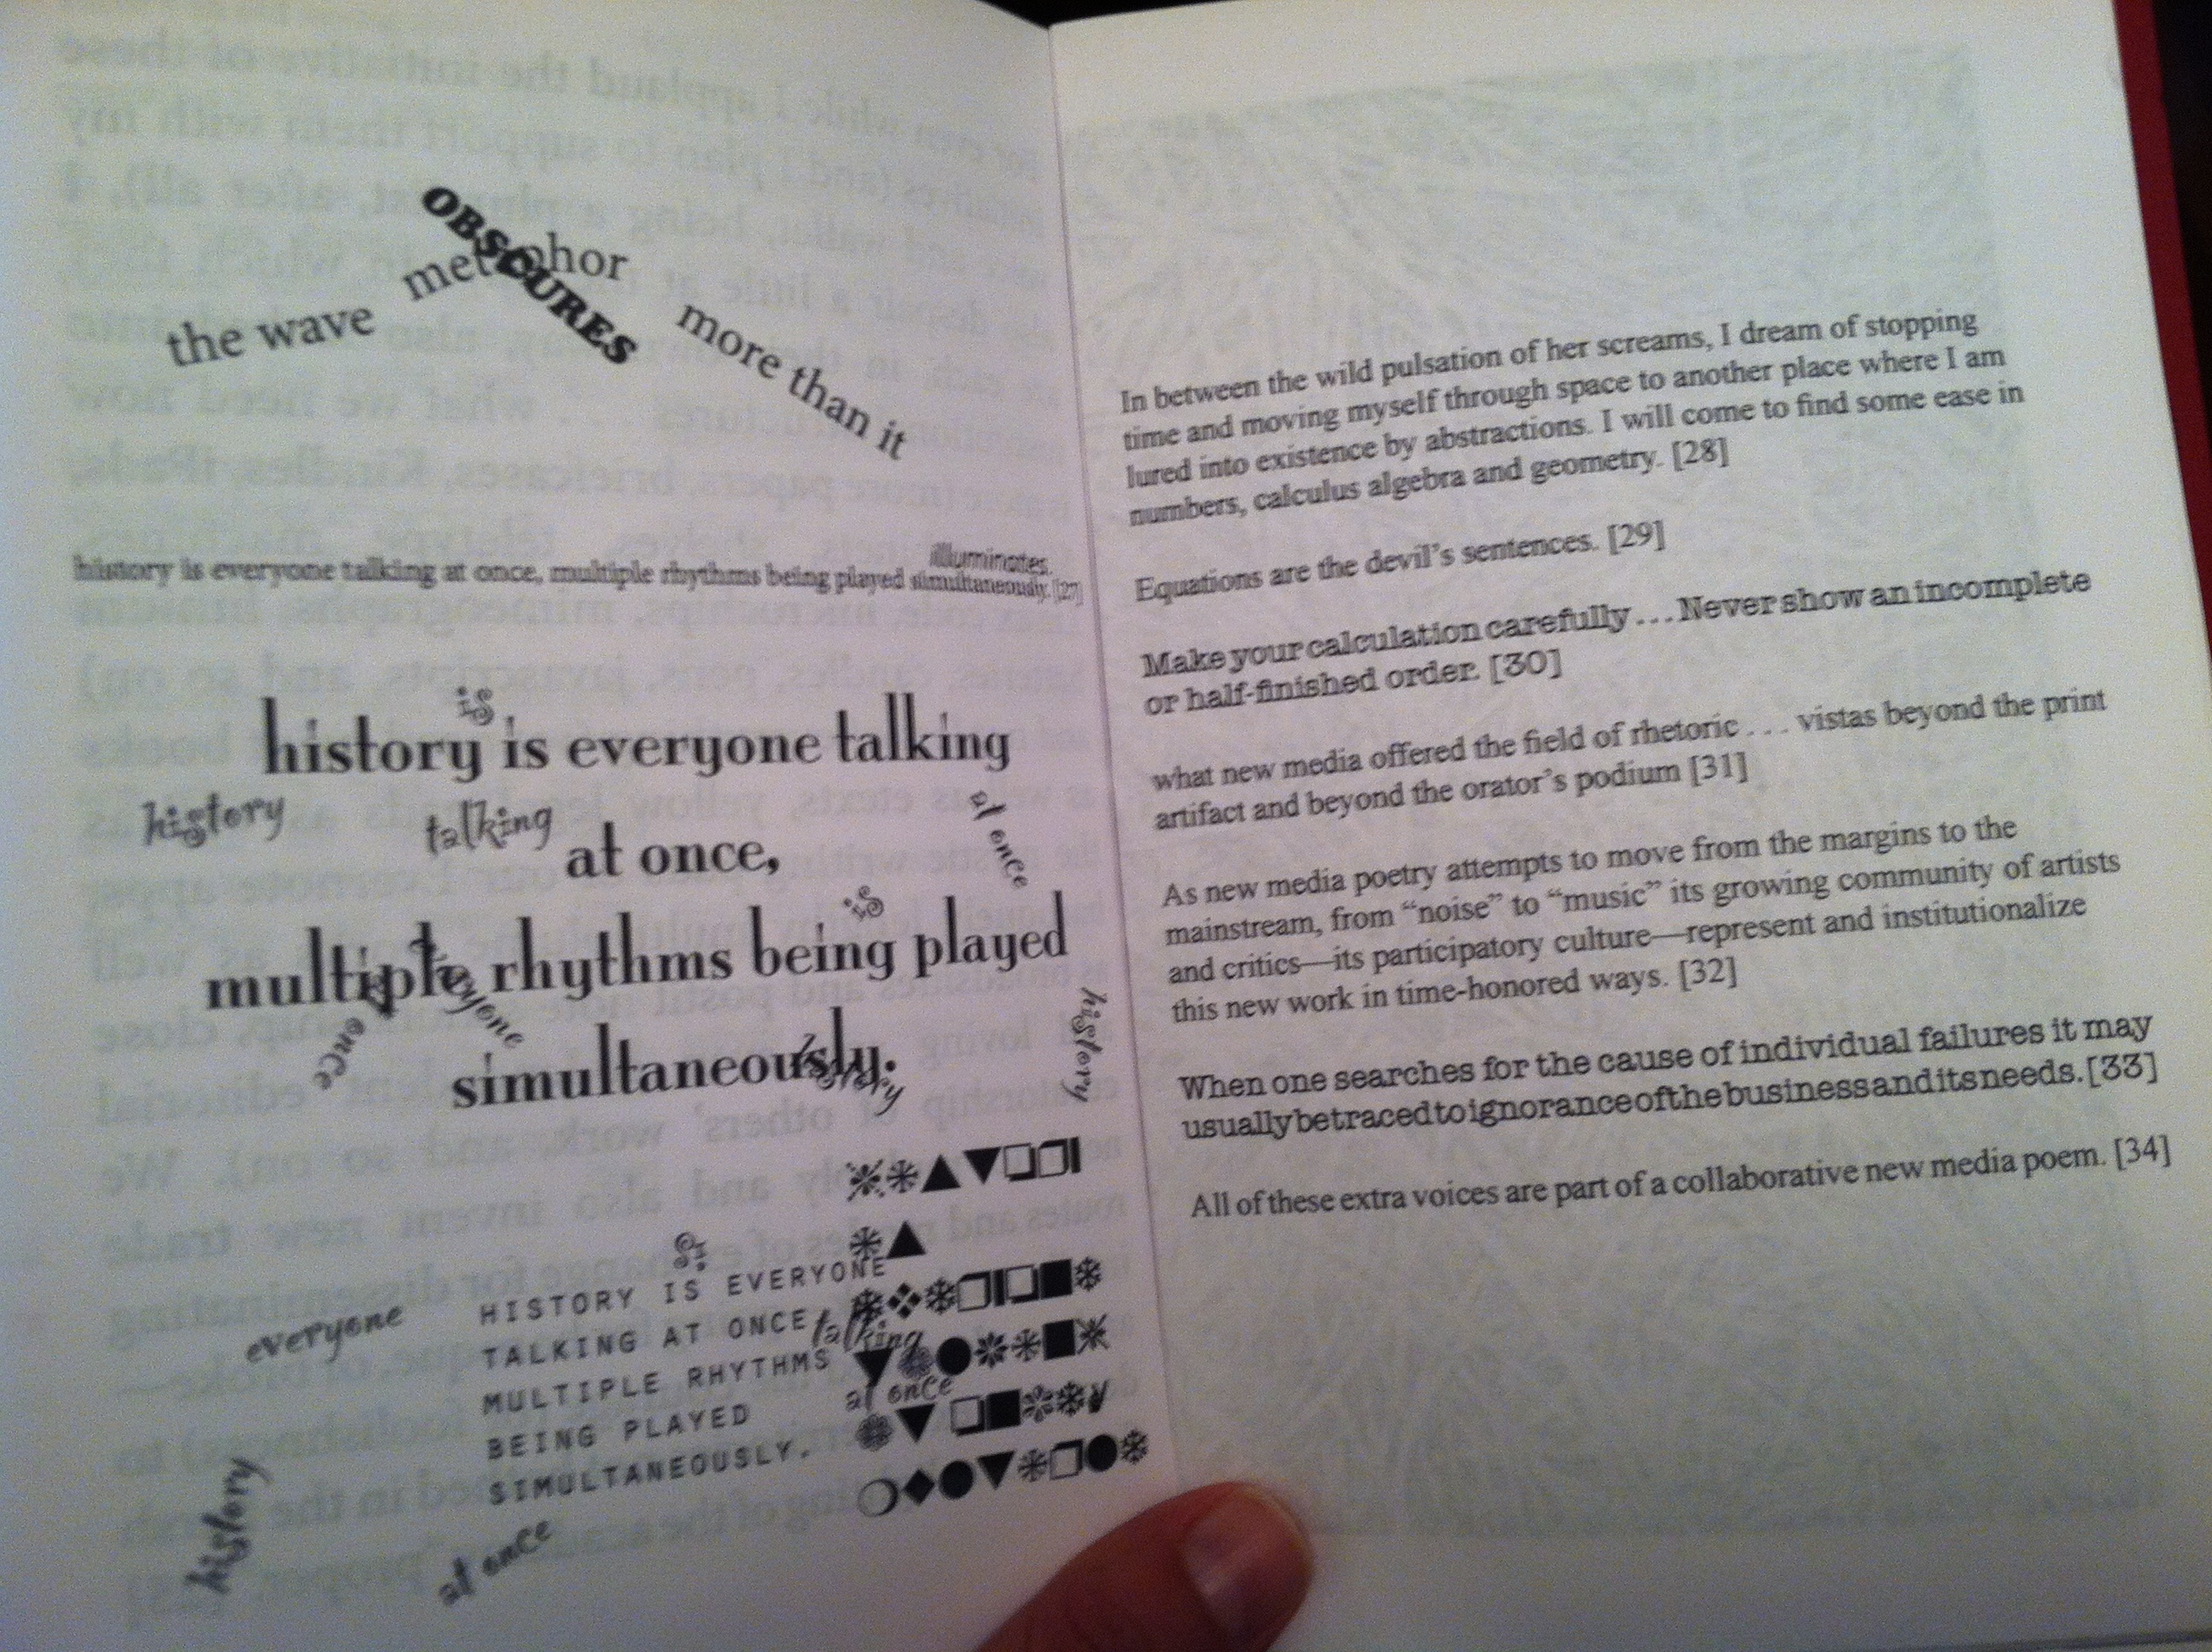 OBSCURES
the wave metaphor more than it
illuminates.
history is everyone talking at once, multiple rhythms being played simultaneously. [27]
is
history is everyone talking
history talking at once, at once
is
multiple rhythms being played
everyone
at once
history
simultaneously.
history
✺✻▲▼❏❒❙
is
✻▲
HISTORY IS EVERYONE
everyone
❄❖❄❒❙❏■❄
TALKING AT ONCE
talking
MULTIPLE RHYTHMS
at once
BEING PLAYED
SIMULTANEOUSLY.
history
at once
In between the wild pulsation of her screams, I dream of stopping
time and moving myself through space to another place where I am
lured into existence by abstractions. I will come to find some ease in
numbers, calculus algebra and geometry. [28]
Equations are the devil’s sentences. [29]
Make your calculation carefully . . . Never show an incomplete
or half-finished order. [30]
what new media offered the field of rhetoric . . . vistas beyond the print
artifact and beyond the orator’s podium [31]
As new media poetry attempts to move from the margins to the
mainstream, from “noise” to “music” its growing community of artists
and critics—its participatory culture—represent and institutionalize
this new work in time-honored ways. [32]
When one searches for the cause of individual failures it may
usually be traced to ignorance of the business and its needs. [33]
All of these extra voices are part of a collaborative new media poem. [34]